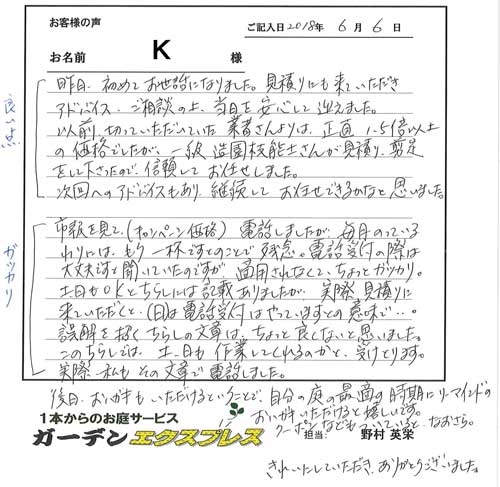 お客様の声
ご記入日 2018年 6月 6日
お名前 K 様
良い点
昨日、初めてお世話になりました。見積りにも来ていただき
アドバイス、ご相談の上、当日を安心して迎えました。
以前、切っていただいていた業者さんよりは、正直 1.5倍以上
の価格でしたが、一級造園技能士さんが見積り、剪定
をして下さったので、信頼してお任せしました。
次回へのアドバイスもあり、継続してお任せできるかなと思いました。
ガッカリ
市報を見て、(キャンペーン価格) 電話しましたが、毎月のっている
わりには、もう一杯ですとのことで残念。電話受付の際は
大丈夫ですと聞いていたのですが、適用されなくて、ちょっとガッカリ。
土日もOKとちらしには記載ありましたが、実際見積りに
来ていただくと、(日)は電話受付はやっていますとの意味で…。
誤解を招くちらしの文章は、ちょっと良くないと思いました。
このちらしでは、土、日も作業してくれるのかと、受けとります。
実際、私もその文章で電話しました。
後日、おハガキもいただけるということで、自分の庭の最適の時期にリマインドの
おハガキいただけると嬉しいです。
クーポンなどもついていると、なおさら。
1本からのお庭サービス
ガーデンエクスプレス
担当: 野村 英栄
きれいにしていただき、ありがとうございました。